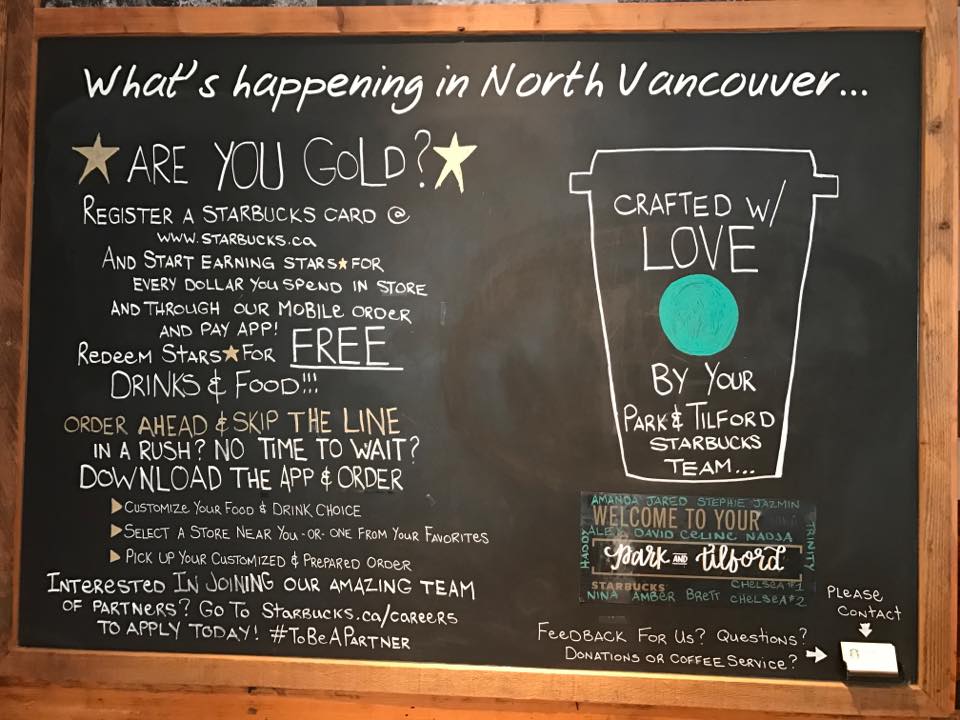 What's happening in North Vancouver...
ARE YOU GOLD?
REGISTER A STARBUCKS CARD @
WWW.STARBUCKS.CA
AND START EARNING STARS★FOR
EVERY DOLLAR YOU SPEND IN STORE
AND THROUGH OUR MOBILE ORDER
AND PAY APP!
REDEEM STARS★FOR FREE
DRINKS & FOOD!!!
ORDER AHEAD & SKIP THE LINE
IN A RUSH? NO TIME TO WAIT?
DOWNLOAD THE APP & ORDER
CUSTOMIZE YOUR FOOD & DRINK CHOICE
SELECT A STORE NEAR YOU -OR- ONE FROM YOUR FAVORITES
PICK UP YOUR CUSTOMIZED & PREPARED ORDER
INTERESTED IN JOINING OUR AMAZING TEAM
OF PARTNERS? GO TO STARBUCKS.CA/CAREERS
TO APPLY TODAY! #TOBEAPARTNER
CRAFTED W/
LOVE
BY YOUR
PARK & TILFORD
STARBUCKS
TEAM...
AMANDA JARED STEPHIE JAZMIN
WELCOME TO YOUR
ALEX DAVID CELINE NADJA
HADDY
TRINITY
park AND tilford
STARBUCKS
CHELSEA #1
NINA AMBER BRETT CHELSEA #2
PLEASE
CONTACT
FEEDBACK FOR US? QUESTIONS?
DONATIONS OR COFFEE SERVICE?